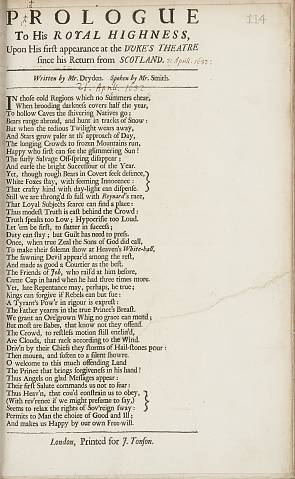 114
PROLOGUE
To His ROYAL HIGHNESS,
Upon His first appearance at the DUKE'S THEATRE
since his Return from SCOTLAND. 21 April. 1682:
Written by Mr. Dryden. Spoken by Mr. Smith.
21. April. 1682.
IN those cold Regions which no Summers chear,
When brooding darkness covers half the year,
To hollow Caves the shivering Natives go;
Bears range abroad, and hunt in tracks of Snow:
But when the tedious Twilight wears away,
And Stars grow paler at th' approach of Day,
The longing Crowds to frozen Mountains run,
Happy who first can see the glimmering Sun!
The surly Salvage Off-spring disappear;
And curse the bright Successour of the Year.
Yet, though rough Bears in Covert seek defence,
White Foxes stay, with seeming Innocence:
That crafty kind with day-light can dispense.
Still we are throng'd so full with Reynard's race,
That Loyal Subjects scarce can find a place:
Thus modest Truth is cast behind the Crowd:
Truth speaks too Low; Hypocrisie too Loud.
Let 'em be first, to flatter in success;
Duty can stay; but Guilt has need to press.
Once, when true Zeal the Sons of God did call,
To make their solemn show at Heaven's White-hall,
The fawning Devil appear'd among the rest,
And made as good a Courtier as the best.
The Friends of Job, who rail'd at him before,
Came Cap in hand when he had three times more.
Yet, late Repentance may, perhaps, be true;
Kings can forgive if Rebels can but sue:
A Tyrant's Pow'r in rigour is exprest:
The Father yearns in the true Prince's Breast.
We grant an Ore'grown Whig no grace can mend;
But most are Babes, that know not they offend.
The Crowd, to restless motion still enclin'd,
Are Clouds, that rack according to the Wind.
Driv'n by their Chiefs they storms of Hail-stones pour:
Then mourn, and soften to a silent showre.
O welcome to this much offending Land
The Prince that brings forgiveness in his hand!
Thus Angels on glad Messages appear:
Their first Salute commands us not to fear:
Thus Heav'n, that cou'd constrain us to obey,
(With rev'rence if we might presume to say,)
Seems to relax the rights of Sov'reign sway:
Permits to Man the choice of Good and Ill;
And makes us Happy by our own Free-will.
London, Printed for J. Tonson.